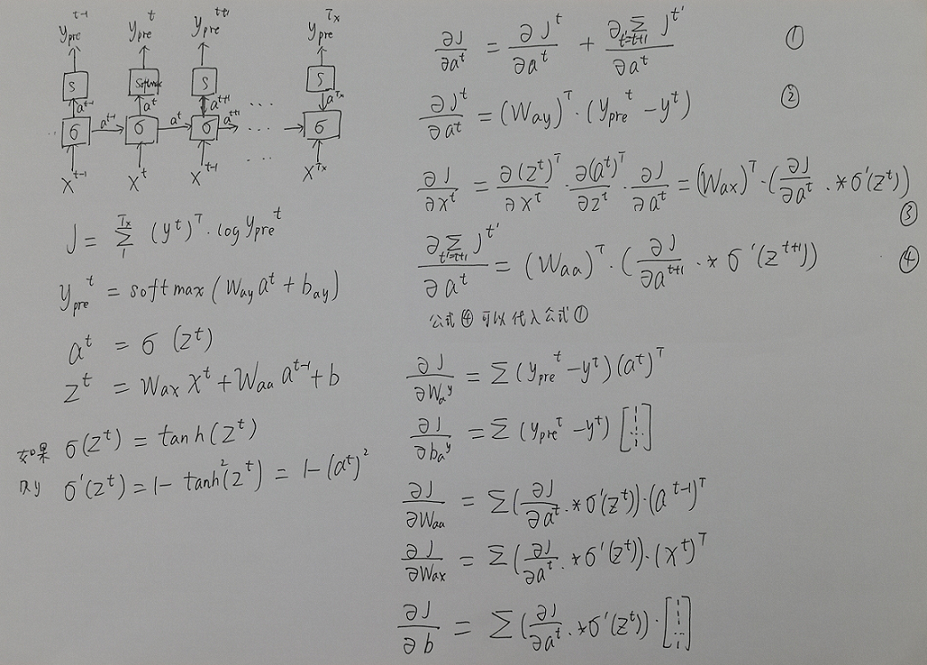 y_pre^{t-1} y_pre^t y_pre^{t+1} y_pre^{Tx}
S softmax S S
a^{t-1} a^t a^{t+1} a^{Tx}
σ a^{t-1} σ a^t σ a^{t+1} ... σ
x^{t-1} x^t x^{t-1} ... x^{Tx}
J = Σ_1^{Tx} (y^t)^T · log y_pre^t
y_pre^t = softmax (Way a^t + bay)
a^t = σ (z^t)
z^t = Wax x^t + Waa a^{t-1} + b
如果 σ(z^t) = tanh(z^t)
则 σ'(z^t) = 1 - tanh^2(z^t) = 1 - (a^t)^2
∂J/∂a^t = ∂J^t/∂a^t + ∂Σ_{t'=t+1} J^{t'}/∂a^t ①
∂J^t/∂a^t = (Way)^T · (y_pre^t - y^t) ②
∂J/∂x^t = ∂(z^t)^T/∂x^t · ∂(a^t)^T/∂z^t · ∂J/∂a^t = (Wax)^T · (∂J/∂a^t .* σ'(z^t)) ③
∂Σ_{t'=t+1} J^{t'}/∂a^t = (Waa)^T · (∂J/∂a^{t+1} .* σ'(z^{t+1})) ④
公式④可以代入公式①
∂J/∂Way = Σ (y_pre^t - y^t)(a^t)^T
∂J/∂bay = Σ (y_pre^t - y^t) [⋮]
∂J/∂Waa = Σ(∂J/∂a^t .* σ'(z^t)) · (a^{t-1})^T
∂J/∂Wax = Σ(∂J/∂a^t .* σ'(z^t)) · (x^t)^T
∂J/∂b = Σ(∂J/∂a^t .* σ'(z^t)) · [⋮]